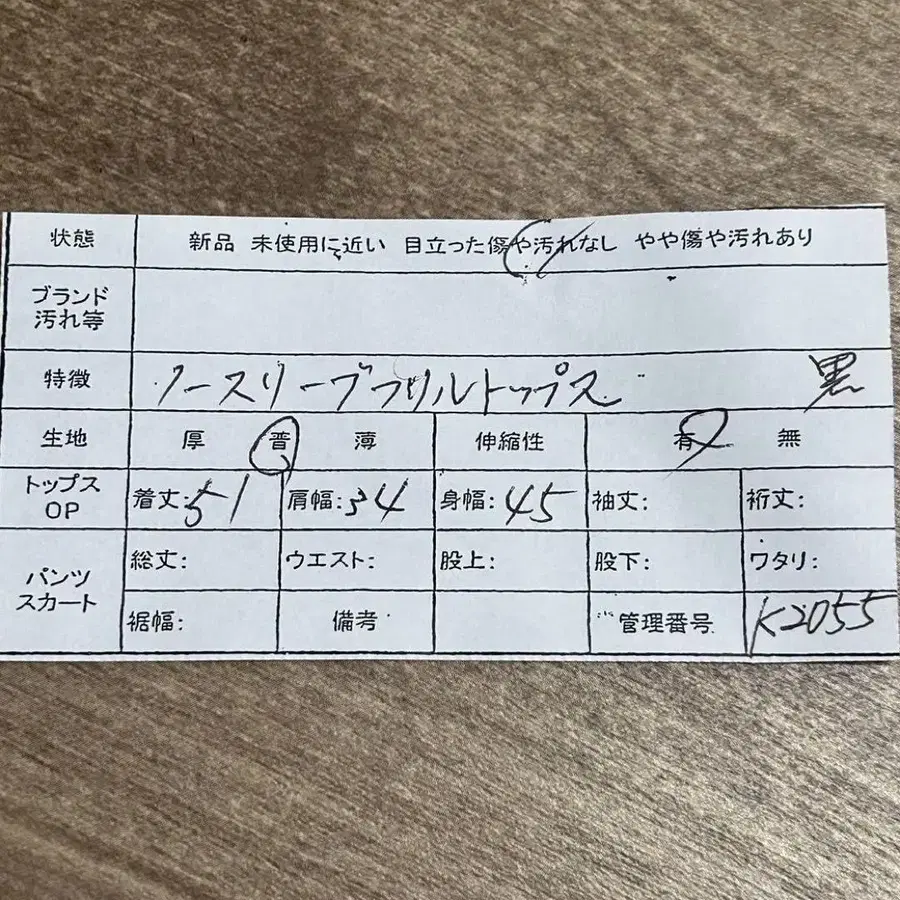 状態 新品 未使用に近い 目立った傷や汚れなし やや傷や汚れあり
ブランド
汚れ等
特徴 ノースリーブフリルトップス 黒
生地 厚 普 薄 伸縮性 有 無
トップス
OP
着丈:51 肩幅:34 身幅:45 袖丈: 裄丈:
パンツ
スカート
総丈: ウエスト: 股上: 股下: ワタリ:
裾幅: 備考 管理番号 K2055